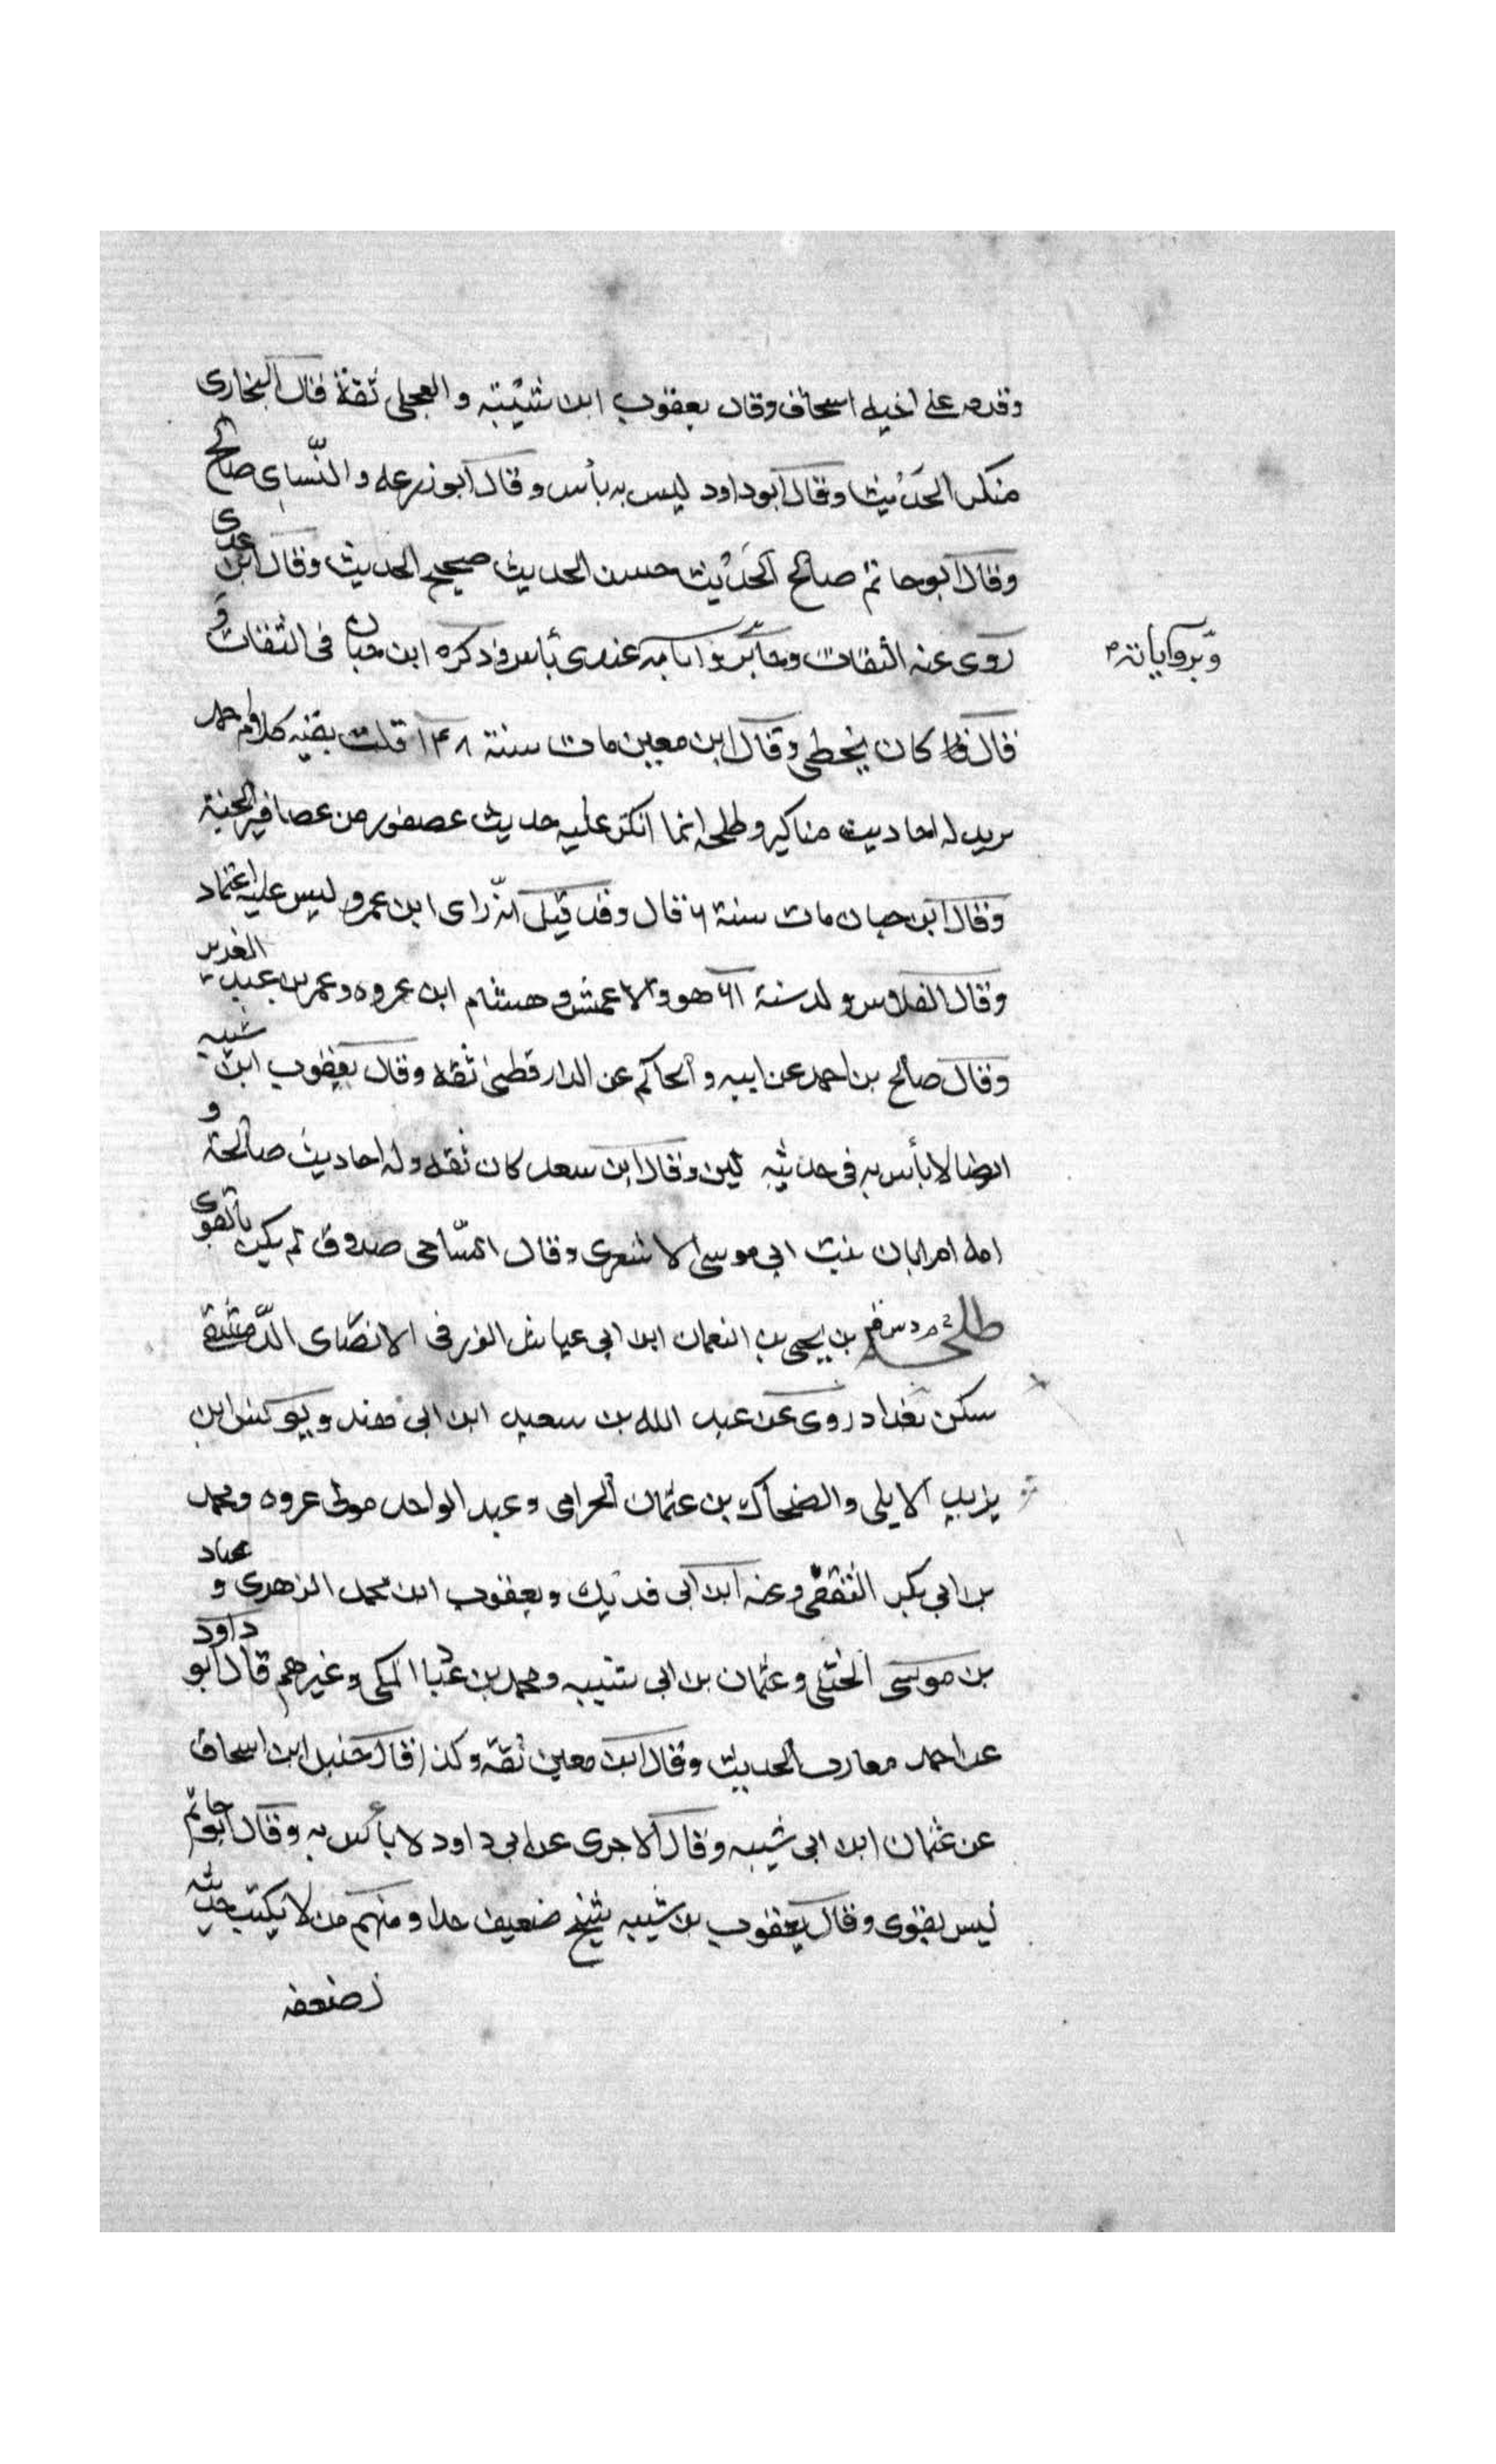 وقدمه على اخيه اسحاق وقال يعقوب ابن شيبة والعجلى ثقة قال البخارى
منكر الحديث وقال ابو داود ليس به بأس وقال ابو زرعه والنّساى صالح
وقال ابو حاتم صالح الحديث حسن الحديث صحيح الحديث وقال ابن عدى
روى عنه الثقات وما به عندى بأس وذكره ابن حبان فى الثقات و
وبرواياته م
قال كان يخطى وقال ابن معين مات سنة ١٤٨ قلت بقيه كلام احمد
بريد له احاديث مناكير وطلحه انما انكر عليه حديث عصفور من عصافير الجنة
وقال ابن حبان مات سنة ٦ قال وقد قيل انّه راى ابن عمرو ليس عليه اعتماد
وقال الفلاس ولد سنة ٦١ هو والاعمش وهشام ابن عروه وعمر بن عبد العزيز
وقال صالح بن احمد عن ابيه والحاكم عن الدارقطنى ثقه وقال يعقوب ابن شيبه
ايضا لا بأس به فى حديثه لين وقال ابن سعد كان ثقه وله احاديث صالحة و
امه ام ابان بنت ابى موسى الاشعرى وقال السّاجى صدوق لم يكن بالقوى
طلحة بن يحيى بن النعمان ابن ابى عياش الزرقى الانصاى الدّمشقى
سكن بغداد روى عن عبد الله بن سعيد ابن ابى هند ويونس ابن
يزيد الايلى والضحاك بن عثمان الحرامى وعبد الواحد مولى عروه ومحمد
بن ابى بكر الثقفى وعنه ابن ابى فديك ويعقوب ابن محمد الزهرى و عباد
بن موسى الختلى وعثمان بن ابى شيبه ومحمد بن عباد المكى وغيرهم قال ابو داود
عن احمد مقارب الحديث وقال ابن معين ثقه وكذا قال حنبل ابن اسحاق
عن عثمان ابن ابى شيبه وقال الاجرى عن ابى داود لا بأس به وقال ابو حاتم
ليس بقوى وقال يعقوب بن شيبه شيخ ضعيف جدا ومنهم من لا يكتب حديثه
لضعفه